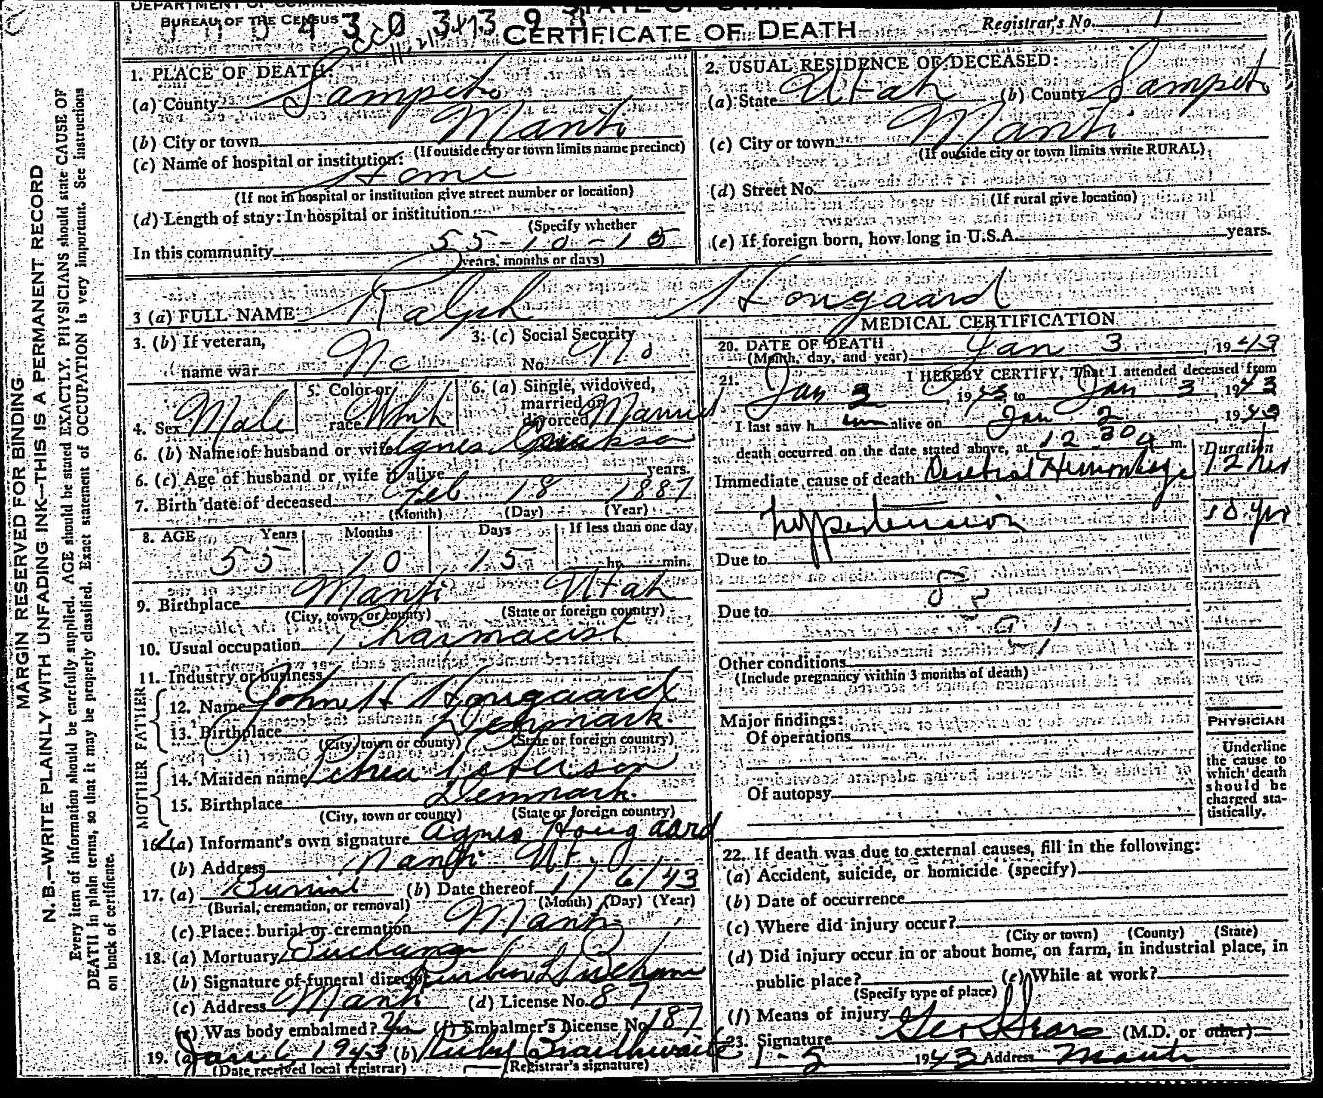 DEPARTMENT OF COMMERCE
STATE OF UTAH
BUREAU OF THE CENSUS
CERTIFICATE OF DEATH
Registrar's No. 1
MARGIN RESERVED FOR BINDING
N. B.—WRITE PLAINLY WITH UNFADING INK—THIS IS A PERMANENT RECORD
Every item of information should be carefully supplied. AGE should be stated EXACTLY. PHYSICIANS should state CAUSE OF
DEATH in plain terms, so that it may be properly classified. Exact statement of OCCUPATION is very important. See instructions
on back of certificate.
1. PLACE OF DEATH:
(a) County Sanpete
(b) City or town Manti
(If outside city or town limits name precinct)
(c) Name of hospital or institution:
Home
(If not in hospital or institution give street number or location)
(d) Length of stay: In hospital or institution
(Specify whether
In this community 55-10-15
years, months or days)
2. USUAL RESIDENCE OF DECEASED:
(a) State Utah (b) County Sanpete
(c) City or town Manti
(If outside city or town limits write RURAL)
(d) Street No.
(If rural give location)
(e) If foreign born, how long in U.S.A. years.
3 (a) FULL NAME Ralph Hougaard
3. (b) If veteran,
name war No
3. (c) Social Security
No. No
4. Sex Male
5. Color or
race White
6. (a) Single, widowed,
married or
divorced Married
6. (b) Name of husband or wife Agnes
6. (c) Age of husband or wife if alive years.
7. Birth date of deceased Feb. 18 1887
(Month) (Day) (Year)
8. AGE Years Months Days If less than one day
55 10 15 hr. min.
9. Birthplace Manti Utah
(City, town, or county) (State or foreign country)
10. Usual occupation Pharmacist
11. Industry or business
FATHER
12. Name John H Hougaard
13. Birthplace Denmark.
(City, town or county) (State or foreign country)
MOTHER
14. Maiden name Petrea Peterson
15. Birthplace Denmark.
(City, town or county) (State or foreign country)
16. (a) Informant's own signature Agnes Hougaard
(b) Address Manti Ut.
17. (a) Burrial (b) Date thereof 1/ 6/ 43
(Burial, cremation, or removal) (Month) (Day) (Year)
(c) Place: burial or cremation Manti
18. (a) Mortuary Buchanan
(b) Signature of funeral director
(c) Address Manti (d) License No. 87
(e) Was body embalmed? Yes (f) Embalmer's License No. 187
19. (a) Jan 6 1943 (b) Ruby Braithwaite
(Date received local registrar) (Registrar's signature)
MEDICAL CERTIFICATION
20. DATE OF DEATH
(Month, day, and year) Jan 3, 1943
21. I HEREBY CERTIFY, That I attended deceased from
Jan 2, 1943 to Jan 3, 1943
I last saw him alive on Jan 2 1943
death occurred on the date stated above, at 12 30 a m.
Duration
Immediate cause of death Cerebral Hemorrhage 12 hrs
hypertension 10 yrs
Due to
Due to
Other conditions
(Include pregnancy within 3 months of death)
Major findings:
Of operations
Of autopsy
PHYSICIAN
Underline
the cause to
which death
should be
charged sta-
tistically.
22. If death was due to external causes, fill in the following:
(a) Accident, suicide, or homicide (specify)
(b) Date of occurrence
(c) Where did injury occur?
(City or town) (County) (State)
(d) Did injury occur in or about home, on farm, in industrial place, in
public place? (e) While at work?
(Specify type of place)
(f) Means of injury
23. Signature Geo L Sears (M.D. or other)
1-5 1943 Address Manti